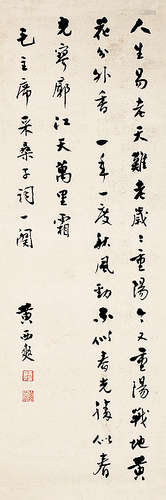 人生易老天難老歲々重陽今又重陽戰地黃
花分外香一年一度秋風勁不似春光勝似春
光寥廓江天萬里霜
毛主席采桑子詞一闋
黃西爽